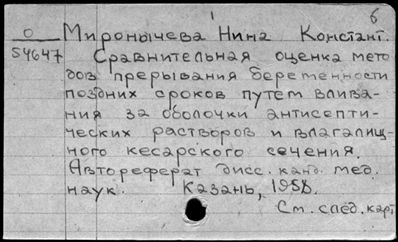 б
О Миронычева Нина Констант.
54647 Сравнительная оценка мето
дов прерывания беременности
поздних сроков путем влива-
ния за оболочки антисепти-
ческих растворов и влагалищ-
ного кесарского сечения.
Автореферат дисс. канд. мед.
наук. Казань, 1958.
См. след. карт